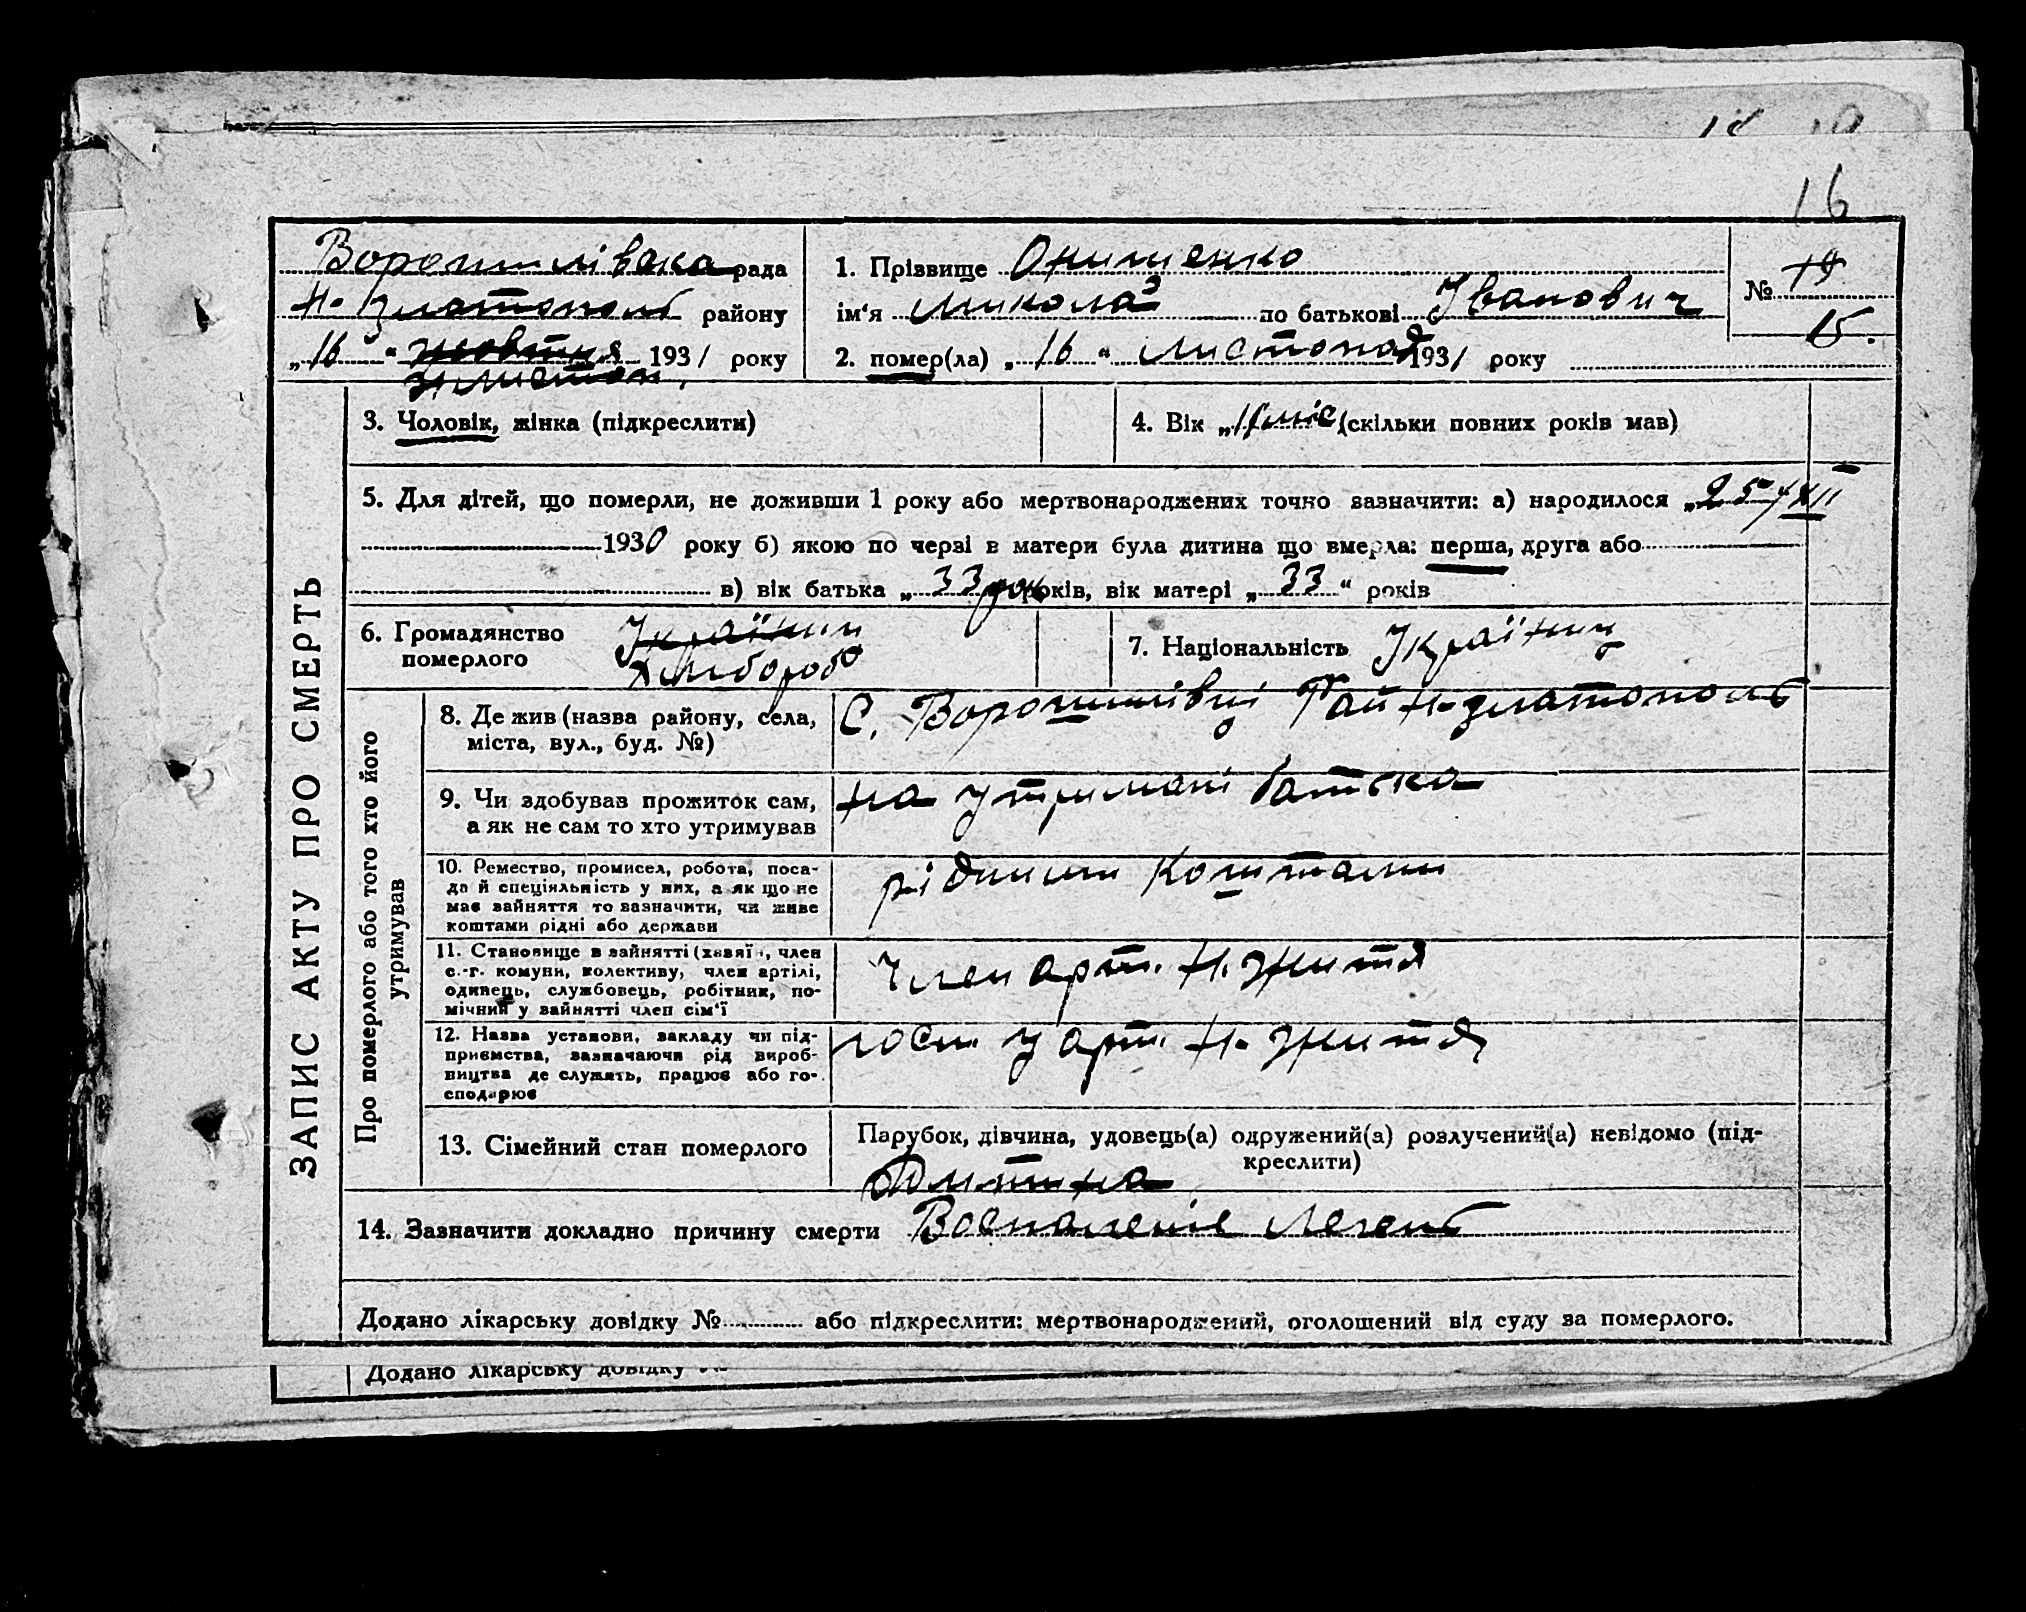 16
Ворошилівска рада
Н. Златополь району
„16“ жовтня 1931 року
листоп.
1. Прізвище Онищенко
ім‘я Микола по батькові Іванович
2. помер(ла) „16“ листопад 1931 року
№ 19
15.
ЗАПИС АКТУ ПРО СМЕРТЬ
3. Чоловік, жінка (підкреслити)
4. Вік „ (скільки повних років мав)
5. Для дітей, що померли, не доживши 1 року або мертвонароджених точно зазначити: а) народилося „25“/XII
1930 року б) якою по черзі в матери була дитина що вмерла: перша, друга або
в) вік батька „33 років, вік матері „33“ років
6. Громадянство
померлого
Українин
хлібороб
7. Національність Українц
Про померлого або того хто його
утримував
8. Де жив (назва району, села,
міста, вул., буд. №)
С. Ворошилівці Рай Н-Златополь
9. Чи здобував прожиток сам,
а як не сам то хто утримував
на утримані батька
10. Ремество, промисел, робота, поса-
да й специяльність у них, а як що не
має зайняття то зазначити, чи живе
коштами рідні або держави
рідними коштами
11. Становище в зайнятті (хазяїн, член
с.-г. комуни, колективу, член артілі,
одинець, службовець, робітник, по-
мічний у зайнятті член сім‘ї
Член арт. Н. Життя
12. Назва установи, закладу чи під-
приємства, зазначаючи рід вироб-
ництва де служить, працює або го-
сподарює
госп у арт. Н. Життя
13. Сімейний стан померлого
Парубок, дівчина, удовець(а) одружений(а) розлучений(а) невідомо (під-
креслити)
Дитина
14. Зазначити докладно причину смерти Воспаленіе легень
Додано лікарську довідку № або підкреслити: мертвонароджений, оголошений від суду за померлого.
Додано лікарську довідку №